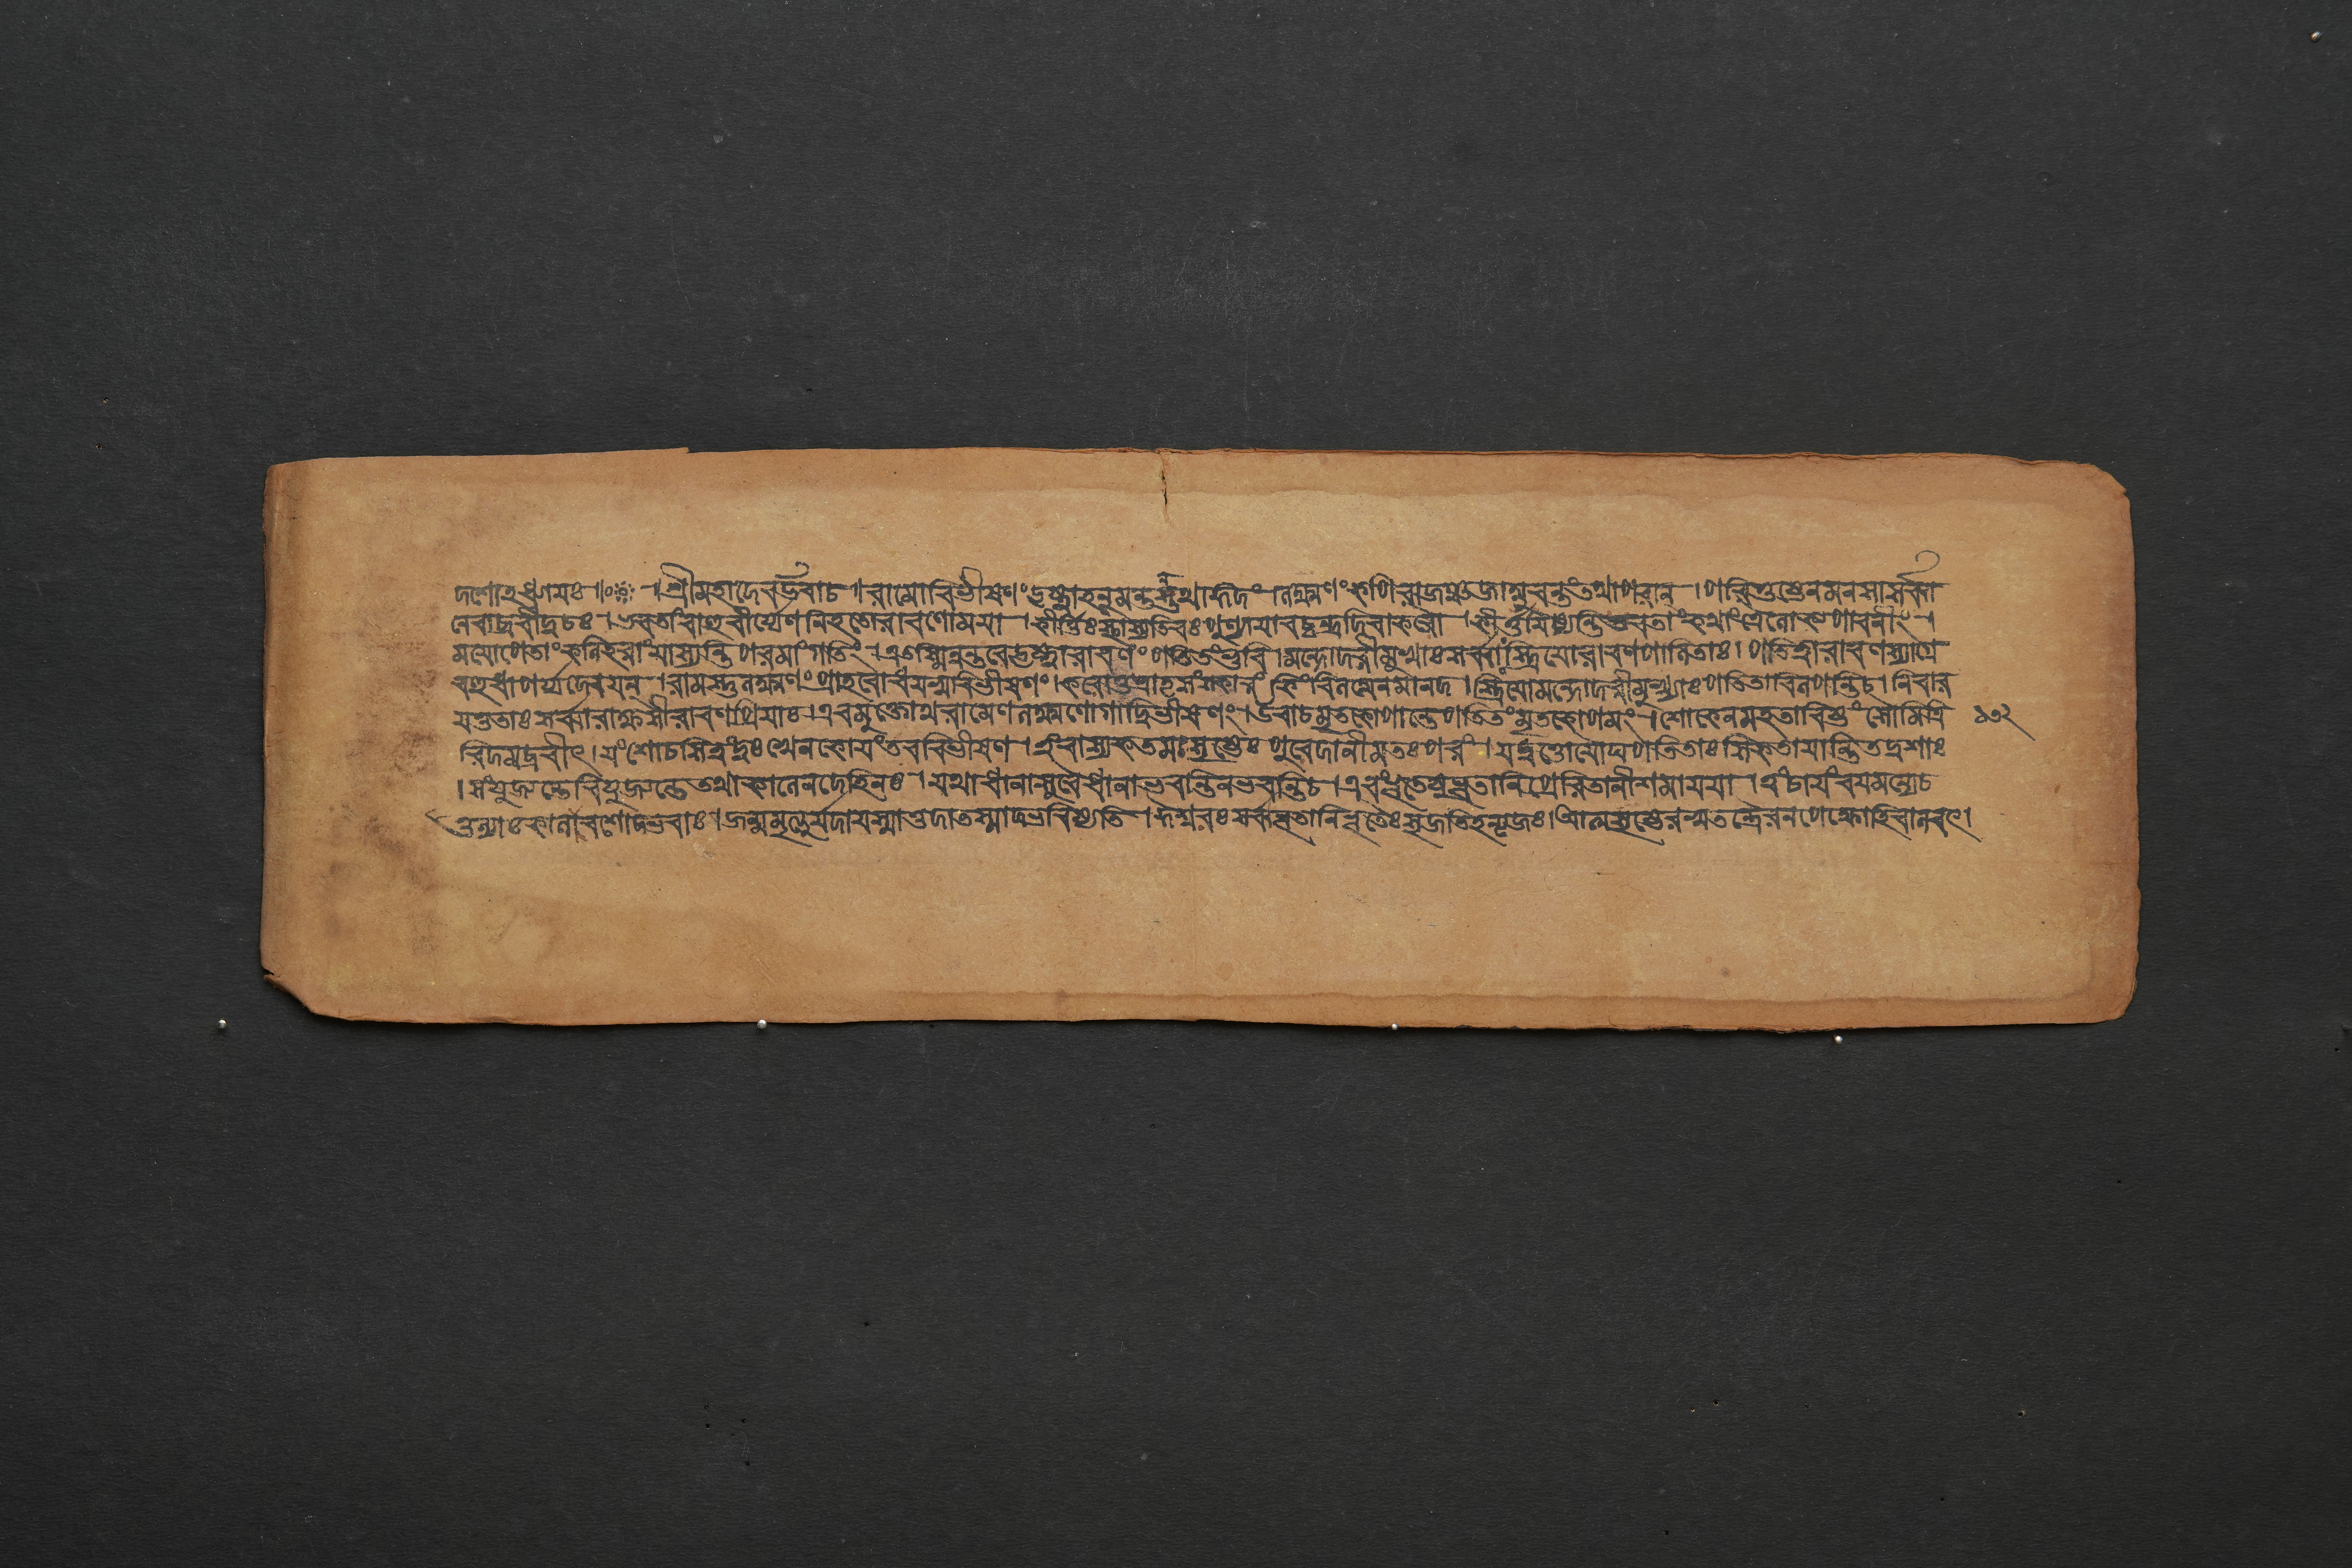 দশোহধ্যায়ঃ॥०॥ ।শ্রীমহাদেবউবাচ।রামোবিভীষণংদৃষ্ট্বাহনূমন্তন্তথাঙ্গদং।লক্ষ্মণংকপিরাজঞ্চজাম্বুবন্তংতথাপরান্।পরিতুষ্টেনমনসাসর্ব্বা
নেবাব্রবীদ্বচঃ।ভবতাংবাহুবীর্য্যেণনিহতোরাবণোময়া।কীর্ত্তিঃস্থাস্যতিবঃপুণ্যাযাবচ্চন্দ্রদিবাকরৌ।কীর্ত্তয়িষ্যন্তিভবতাংকথাংত্রৈলোক্যপাবনীং।
ময়োপেতাংকলিহরাংযাস্যন্তিপরমাংগতিং।এতস্মিন্নন্তরেদৃষ্ট্বারাবণংপতিতংভুবি।মন্দোদরীমুখাঃসর্ব্বাঃস্ত্রিয়োরাবণপালিতাঃ।পতিতারাবণস্যাগ্রে
বহুধাপর্য্যদেবয়ন্।রামস্তুলক্ষ্মণংপ্রাহবোধয়স্ববিভীষণং।করোতুভ্রাতৃসংস্কারংকিংবিলম্বেনমানদ।স্ত্রিয়োমন্দোদরীমুখ্যাঃপতিতাবিলপন্তিচ।নিবার
য়তুতাঃসর্ব্বারাক্ষসীরাবণপ্রিয়াঃ।এবমুক্তোথরামেণলক্ষ্মণোগাদ্বিভীষণং।উবাচমৃতকোপান্তেপতিতংমৃতকোপমং।শোকেনমহতাবিষ্টংসৌমিত্রি ১৩২
রিদমব্রবীৎ।যংশোচসিত্বংদুঃখেনকোয়ংতববিভীষণ।ত্বংবাস্যকতমঃসৃষ্টেঃপুরেদানীমতঃপরং।যদ্বত্তোয়ৌঘপতিতাঃসিকতাযান্তিতদ্বশাঃ
।সংযুজ্যন্তেবিযুজ্যন্তেতথাকালেনদেহিনঃ।যথাধানাসুবৈধানাভবন্তিনভবন্তিচ।এবংভূতেষুভূতানিপ্রেরিতানীশমায়য়া।ত্বংচায়ংবয়মন্যেচ
তুল্যাঃকালবশোদ্ভবাঃ।জন্মমৃত্যুর্যদাযস্মাত্তদাতস্মাদ্ভবিষ্যতি।ঈশ্বরঃসর্ব্বভূতানিভূতৈঃসৃজতিহন্ত্যজঃ।আত্মসৃষ্টৈরস্বতন্ত্রৈরনপেক্ষোপিবালবৎ।